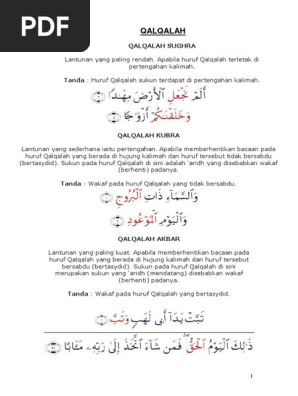 PDF
QALQALAH
QALQALAH SUGHRA
Lantunan yang paling rendah. Apabila huruf Qalqalah terletak di
pertengahan kalimah.
Tanda : Huruf Qalqalah sukun terdapat di pertengahan kalimah.
أَلَمْ نَجْعَلِ ٱلْأَرْضَ مِهَٰدًا
وَخَلَقْنَٰكُمْ أَزْوَٰجًا
QALQALAH KUBRA
Lantunan yang sederhana iaitu pertengahan. Apabila memberhentikan bacaan pada
huruf Qalqalah yang berada di hujung kalimah dan huruf tersebut tidak bersabdu
(bertasydid). Sukun pada huruf Qalqalah di sini adalah 'aridh yang disebabkan wakaf
(berhenti) padanya.
Tanda : Wakaf pada huruf Qalqalah yang tidak bersabdu.
وَٱلسَّمَآءِ ذَاتِ ٱلْبُرُوجِ
وَٱلْيَوْمِ ٱلْمَوْعُودِ
QALQALAH AKBAR
Lantunan yang paling kuat. Apabila memberhentikan bacaan pada
huruf Qalqalah yang berada di hujung kalimah dan huruf tersebut
bersabdu (bertasydid). Sukun pada huruf Qalqalah di sini
merupakan sukun yang 'aridh (mendatang) disebabkan wakaf
(berhenti) padanya.
Tanda : Wakaf pada huruf Qalqalah yang bertasydid.
تَبَّتْ يَدَآ أَبِى لَهَبٍ وَتَبَّ
ذَٰلِكَ ٱلْيَوْمُ ٱلْحَقُّ ۖ فَمَن شَآءَ ٱتَّخَذَ إِلَىٰ رَبِّهِۦ مَـَٔابًا
1